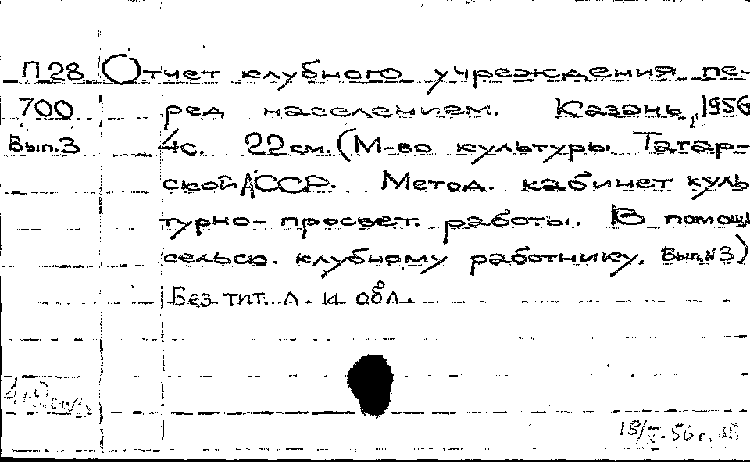 П28 Отчет клубного учреждения пе-
700 ред населением. Казань, 1956
Вып.3 4с. 22см. (М-во культуры Татар-
ской АССР. Метод. кабинет куль
турно-просвет. работы. В помощь
сельск. клубному работнику. Вып.№3)
Без тит. л. и обл.
-56г.